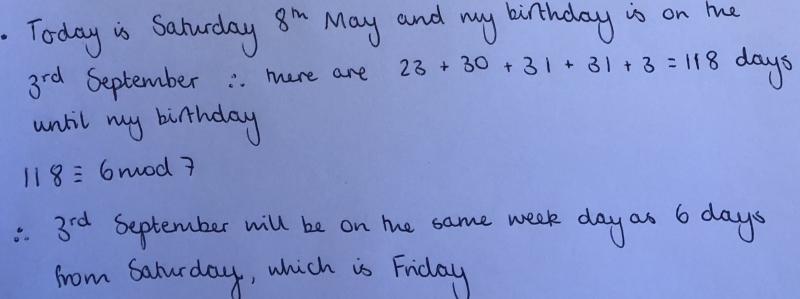 . Today is Saturday 8th May and my birthday is on the
3rd September ∴ there are 23 + 30 + 31 + 31 + 3 = 118 days
until my birthday
118 ≡ 6 mod 7
∴ 3rd September will be on the same week day as 6 days
from Saturday, which is Friday